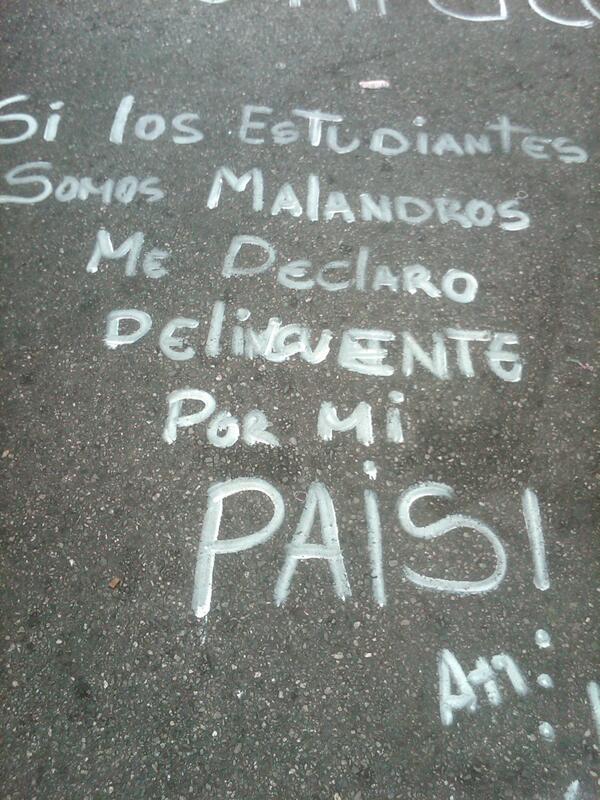 Si los EsTUDiANtES
SOMOS MAlANDROS
ME DEClARO
DElINCUENTE
POR Mi
PAiS!
Att: